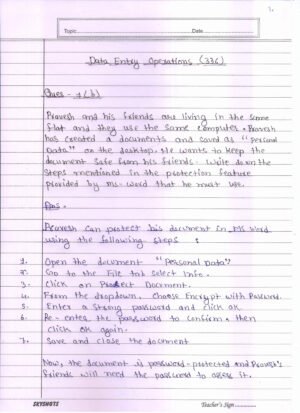 1.
Topic
Date
Data Entry Operations (336)
Ques - 1 (b)
Pravesh and his friends are living in the same
flat and they use the same computer. Pravesh
has created a documents and saved as "personal
Data" on the desktop. He wants to keep the
document safe from his friends. Write down the
steps mentioned in the protection feature
provided by MS-Word that he must use.
Ans.
Pravesh can protect his document in MS Word
using the following steps :
1. Open the document "personal Data"
2. Go to the File tab select Info.
3. Click on Protect Document.
4. From the dropdown, choose Encrypt with Password.
5. Enter a strong password and click ok.
6. Re-enter the password to confirm, then
click ok again.
7. Save and close the document
Now, the document is password-protected and Pravesh's
friends will need the password to access it.
SKYSHOTS
Teacher's Sign